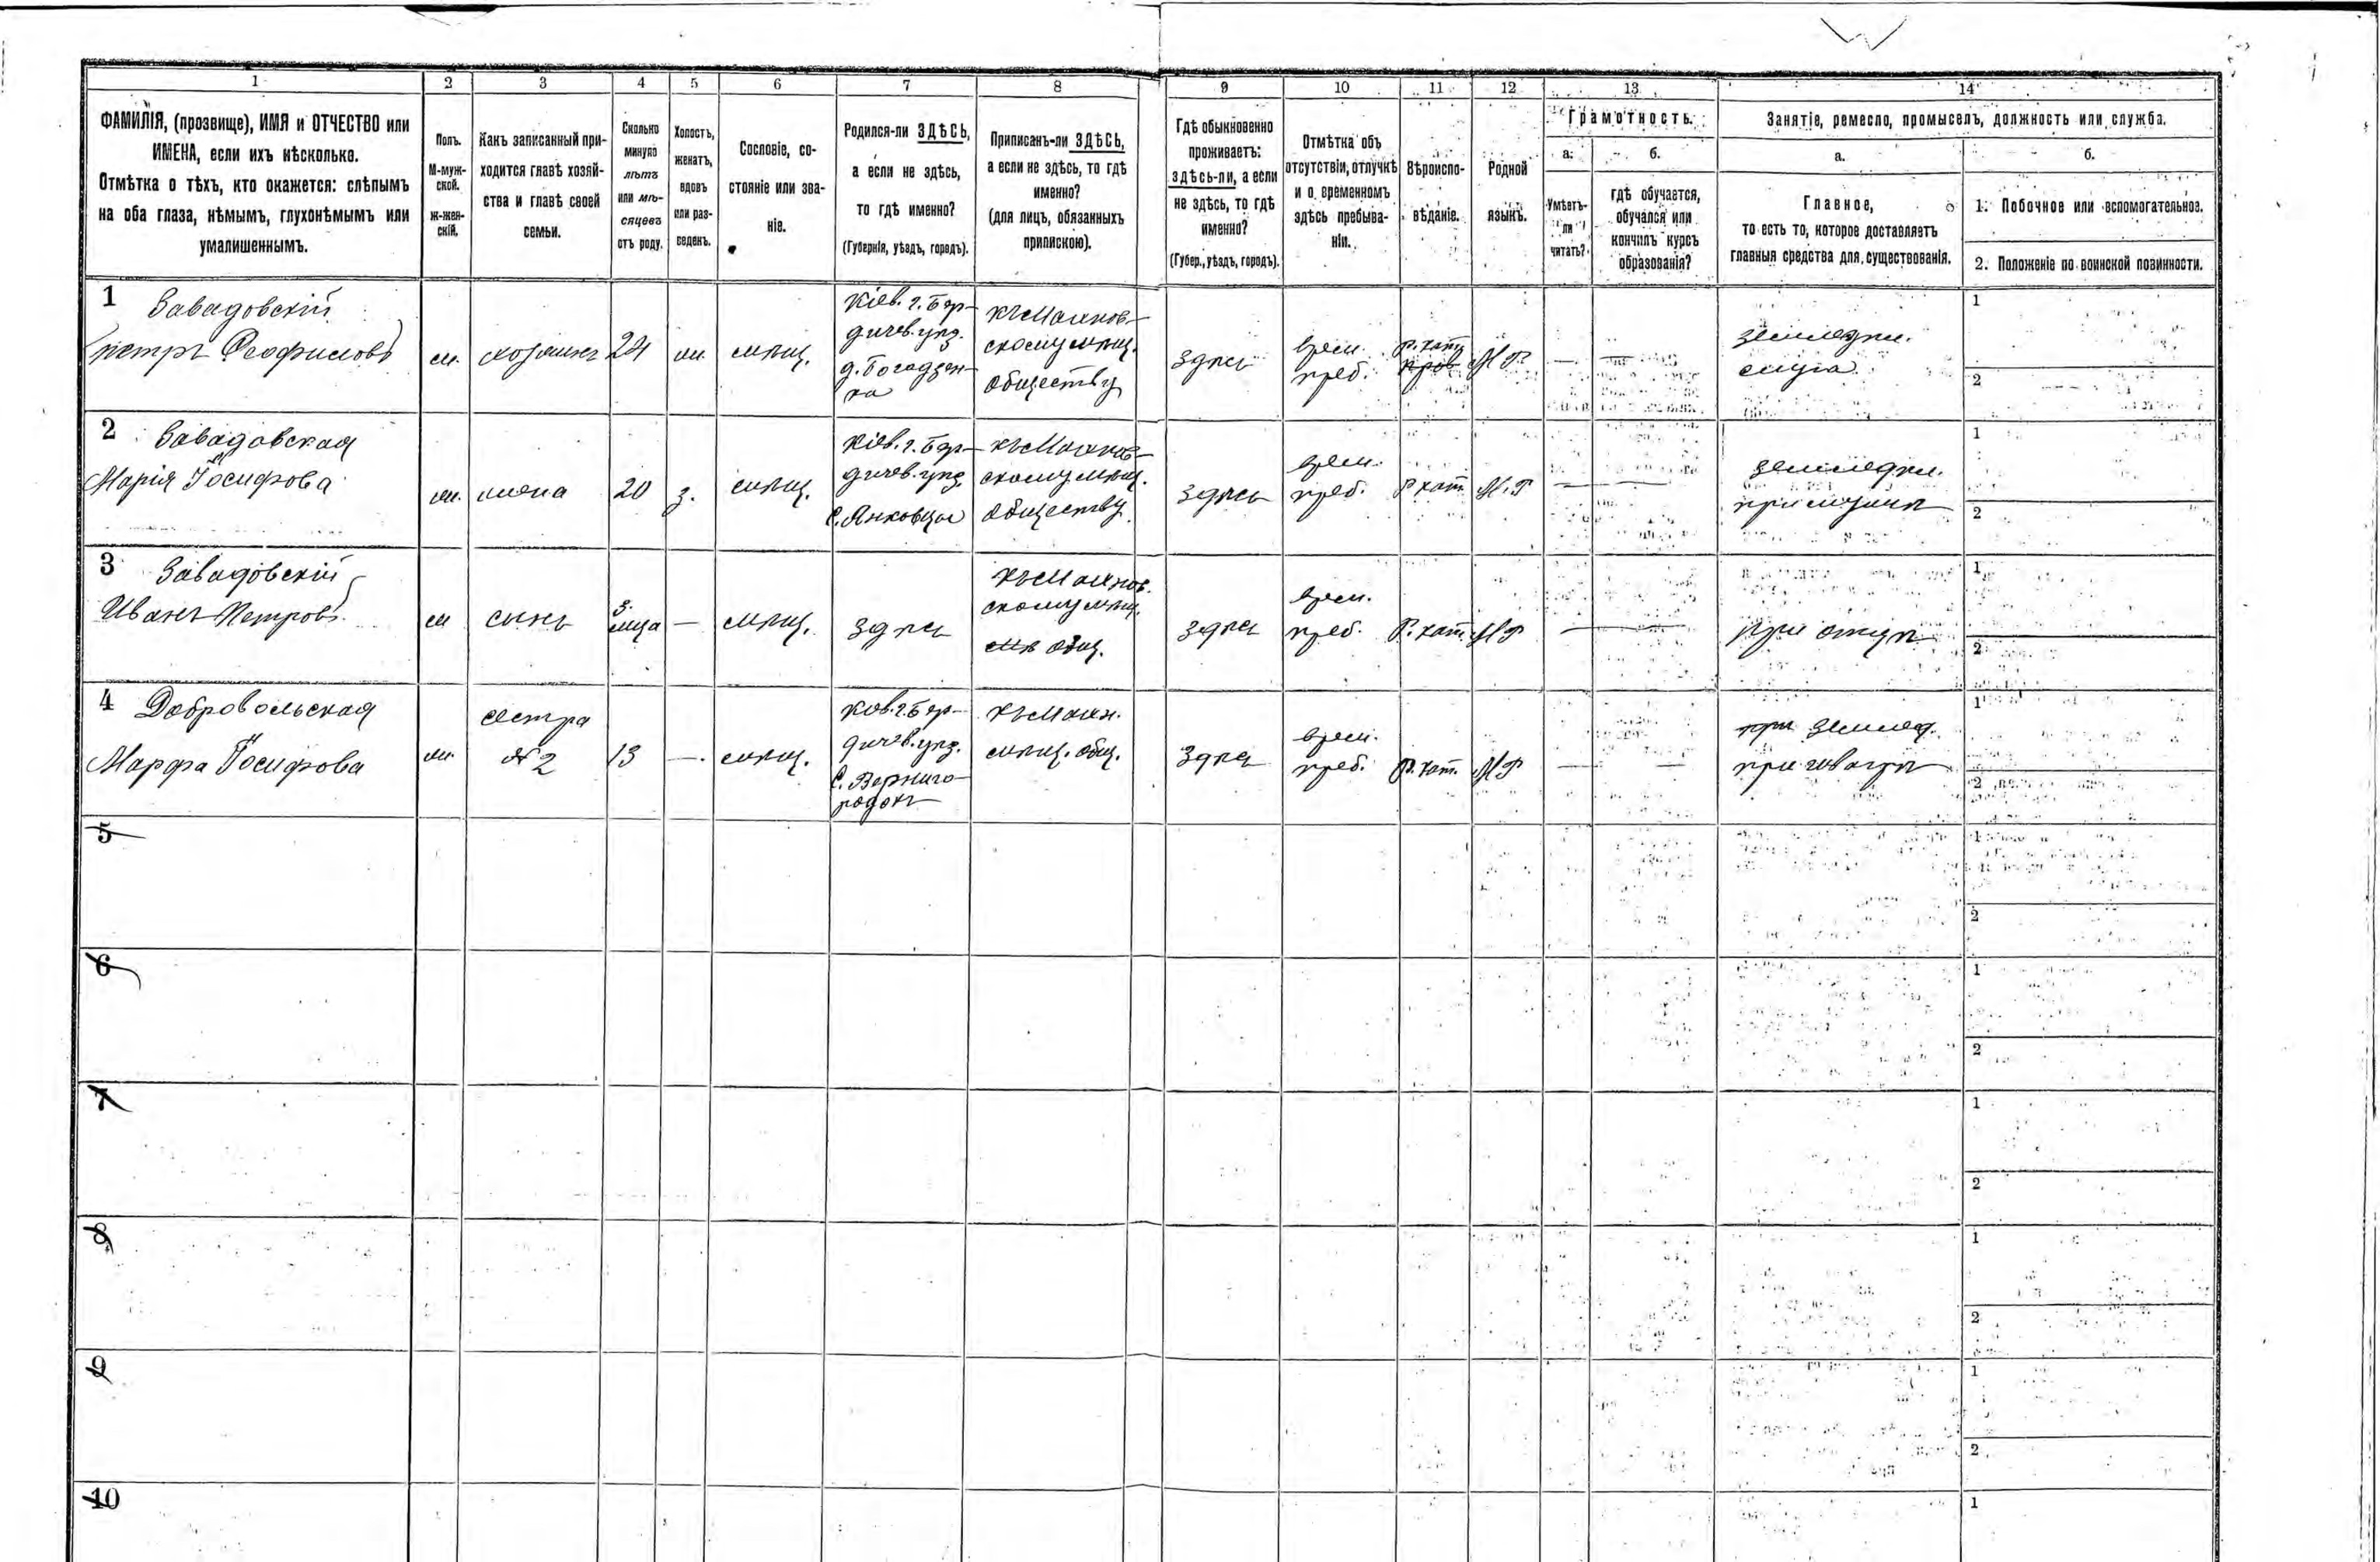 1 2 3 4 5 6 7 8 9 10 11 12 13 14
ФАМИЛІЯ, (прозвище), ИМЯ и ОТЧЕСТВО или
ИМЕНА, если ихъ нѣсколько.
Отмѣтка о тѣхъ, кто окажется: слѣпымъ
на оба глаза, нѣмымъ, глухонѣмымъ или
умалишеннымъ.
Полъ.
М-муж-
ской.
ж-жен-
скій.
Какъ записанный при-
ходится главѣ хозяй-
ства и главѣ своей
семьи.
Сколько
минуло
лѣтъ
или мѣ-
сяцевъ
отъ роду.
Холостъ,
женатъ,
вдовъ
или раз-
веденъ.
Сословіе, со-
стояніе или зва-
ніе.
Родился-ли ЗДѢСЬ,
а если не здѣсь,
то гдѣ именно?
(Губернія, уѣздъ, городъ).
Приписанъ-ли ЗДѢСЬ,
а если не здѣсь, то гдѣ
именно?
(для лицъ, обязанныхъ
припискою).
Гдѣ обыкновенно
проживаетъ:
здѣсь-ли, а если
не здѣсь, то гдѣ
именно?
(Губер., уѣздъ, городъ).
Отмѣтка объ
отсутствіи, отлучкѣ
и о временномъ
здѣсь пребыва-
ніи.
Вѣроиспо-
вѣданіе.
Родной
языкъ.
Грамотность.
а.
Умѣетъ-
ли
читать?
б.
гдѣ обучается,
обучался или
кончилъ курсъ
образованія?
Занятіе, ремесло, промыселъ, должность или служба.
а.
Главное,
то есть то, которое доставляетъ
главныя средства для существованія.
б.
1. Побочное или вспомогательное.
2. Положеніе по воинской повинности.
1 Завадовскій
Петръ Феофиловъ
м.
хозяинъ
24
ж.
мѣщ.
Кіев. г. Бер-
дичев. уѣз.
къ Махнов-
скому мѣщ.
обществу
здѣсь
врем.
преб.
р. кат
прав
М Р
—
—
земледѣл.
слуга
1
2
2 Завадовская
Марія Іосифова
ж.
жена
20
з.
мѣщ.
Кіев. г. Бер-
дичев. уѣз.
с. Янковцы
къ Махнов-
скому мѣщ.
обществу
здѣсь
врем.
преб.
Р. кат.
М. Р
—
—
земледѣл.
при мужѣ
1
2
3 Завадовскій
Иванъ Петровъ
м
сынъ
3.
мца
—
мѣщ.
здѣсь
къ Махнов.
скому мѣщ.
общ.
здѣсь
врем.
преб.
Р. кат.
М Р
—
—
при отцѣ
1
2
4 Добровольская
Марфа Іосифова
ж.
сестра
№ 2
13
—
мѣщ.
Кев. г. Бер-
дичев. уѣз.
С. Верниго-
родокъ
къ Махн.
мѣщ. общ.
здѣсь
врем.
преб.
Р. кат.
М Р
—
—
при землед.
1
2
5
1
2
6
1
2
7
1
2
8
1
2
9
1
2
10
1